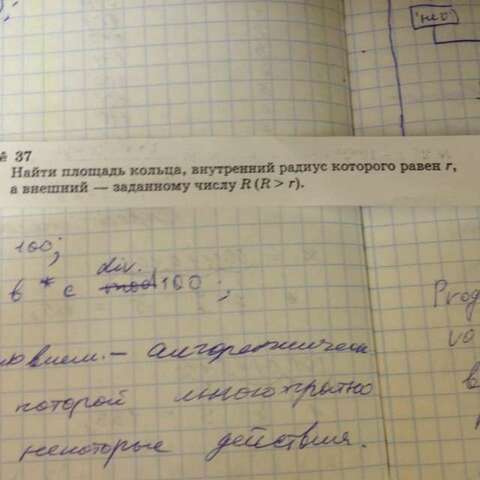 "нет"
№ 37
Найти площадь кольца, внутренний радиус которого равен r,
а внешний — заданному числу R (R > r).
100;
div.
в * с mod 100 ;
которой многократно
некоторые действия.
Prog
va